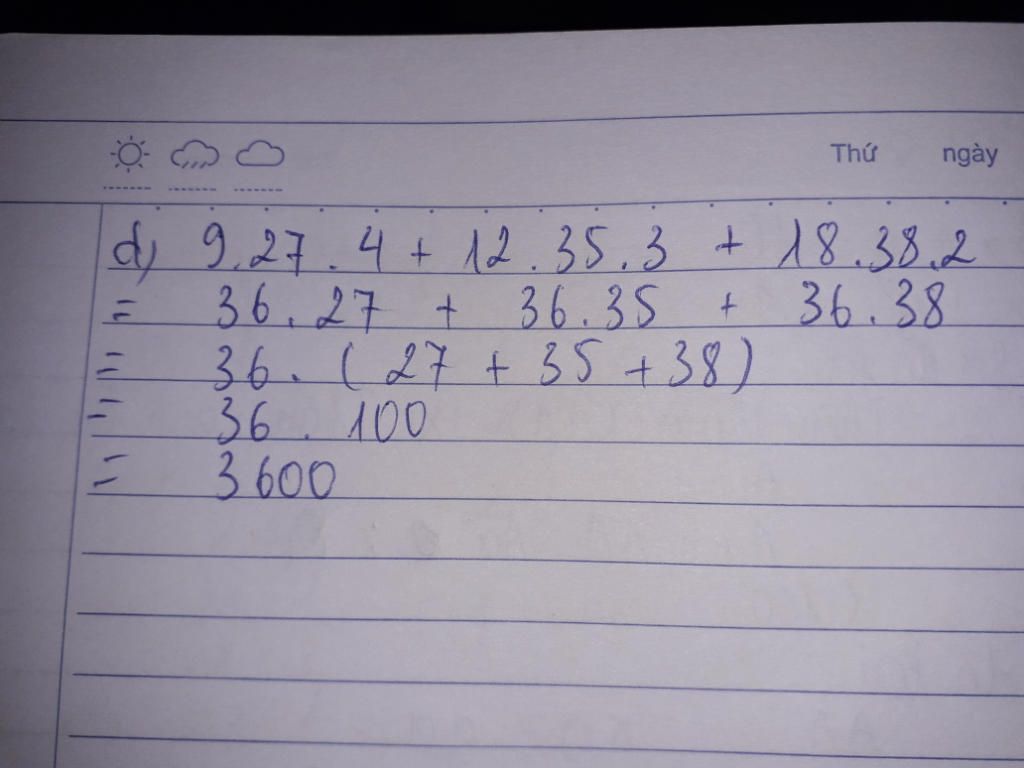 Thứ ngày
d) 9.27.4 + 12.35.3 + 18.38.2
= 36.27 + 36.35 + 36.38
= 36.(27 + 35 + 38)
= 36.100
= 3600